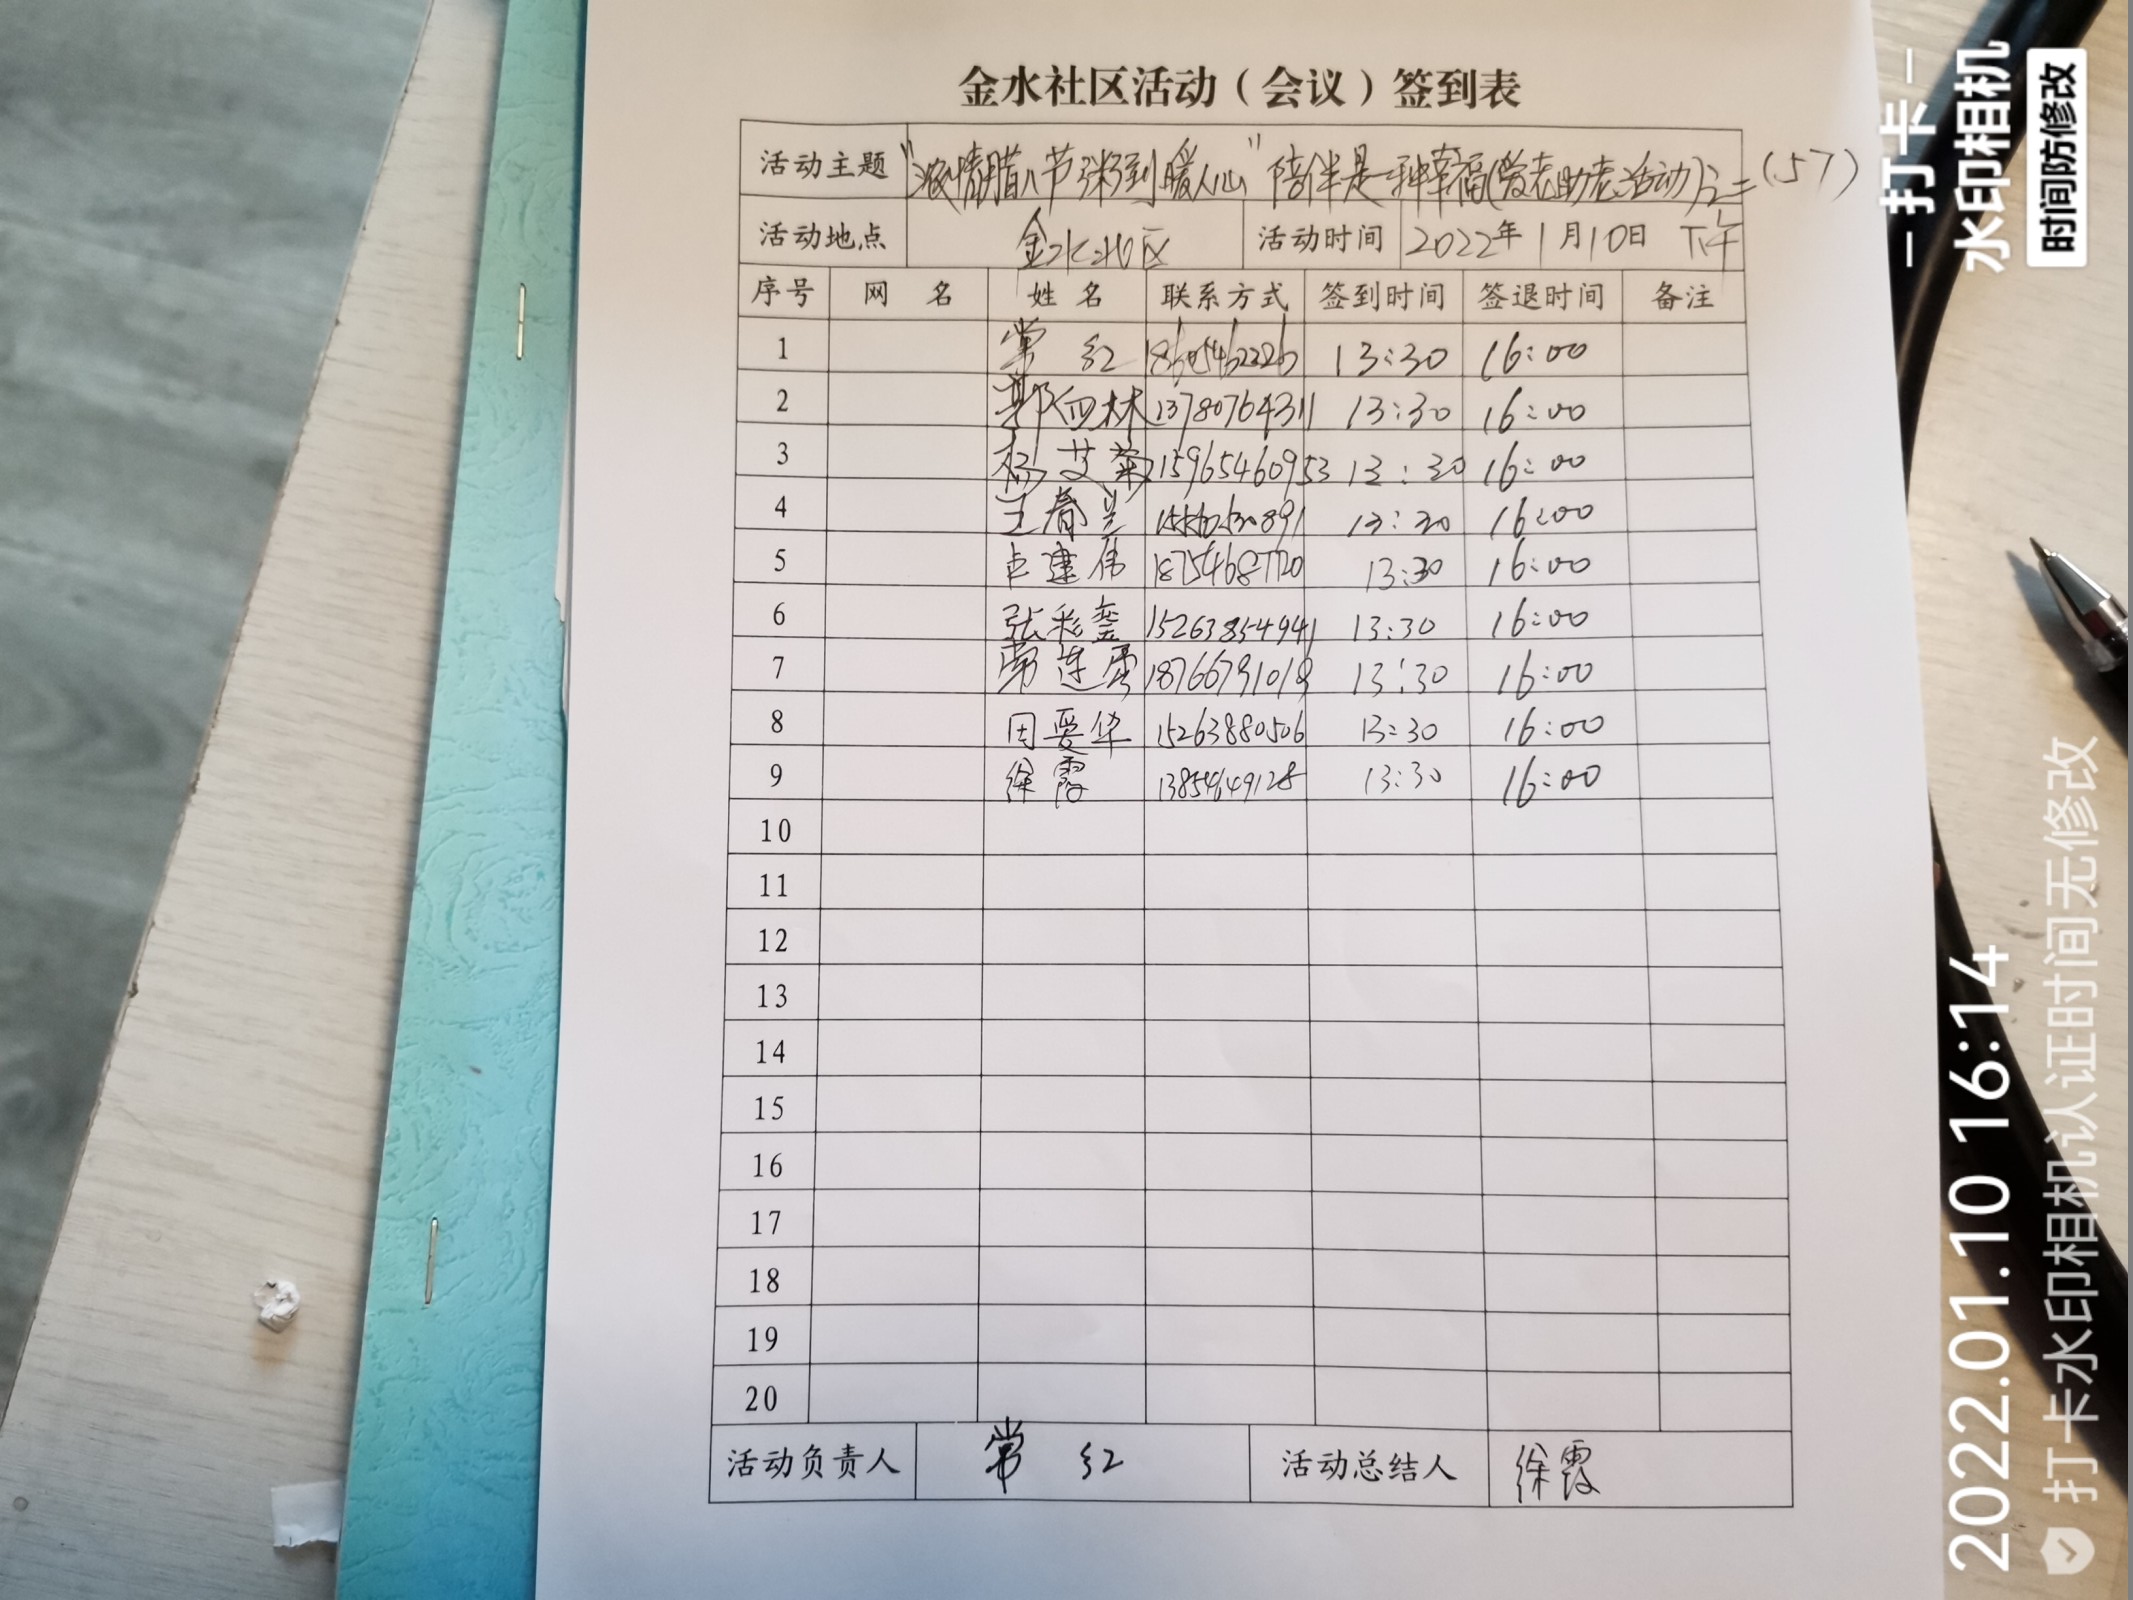 金水社区活动（会议）签到表
活动主题 "浓情腊八节 粥到暖人心" 陪伴是一种幸福(爱老助老活动)之二(57)
活动地点 金水社区 活动时间 2022年1月10日 下午
序号 网 名 姓 名 联系方式 签到时间 签退时间 备注
1 常 红 18605462226 13:30 16:00
2 郭向林 13780764311 13:30 16:00
3 杨艾菊 15965460953 13:30 16:00
4 王春兰 13:30 16:00
5 建伟 18754687720 13:30 16:00
6 张彩銮 15263854941 13:30 16:00
7 常连 18766791019 13:30 16:00
8 爱华 15263880506 13:30 16:00
9 徐霞 13854649128 13:30 16:00
10
11
12
13
14
15
16
17
18
19
20
活动负责人 常 红 活动总结人 徐霞
打卡
水印相机
时间防修改
2022.01.10 16:14
打卡水印相机认证时间无修改